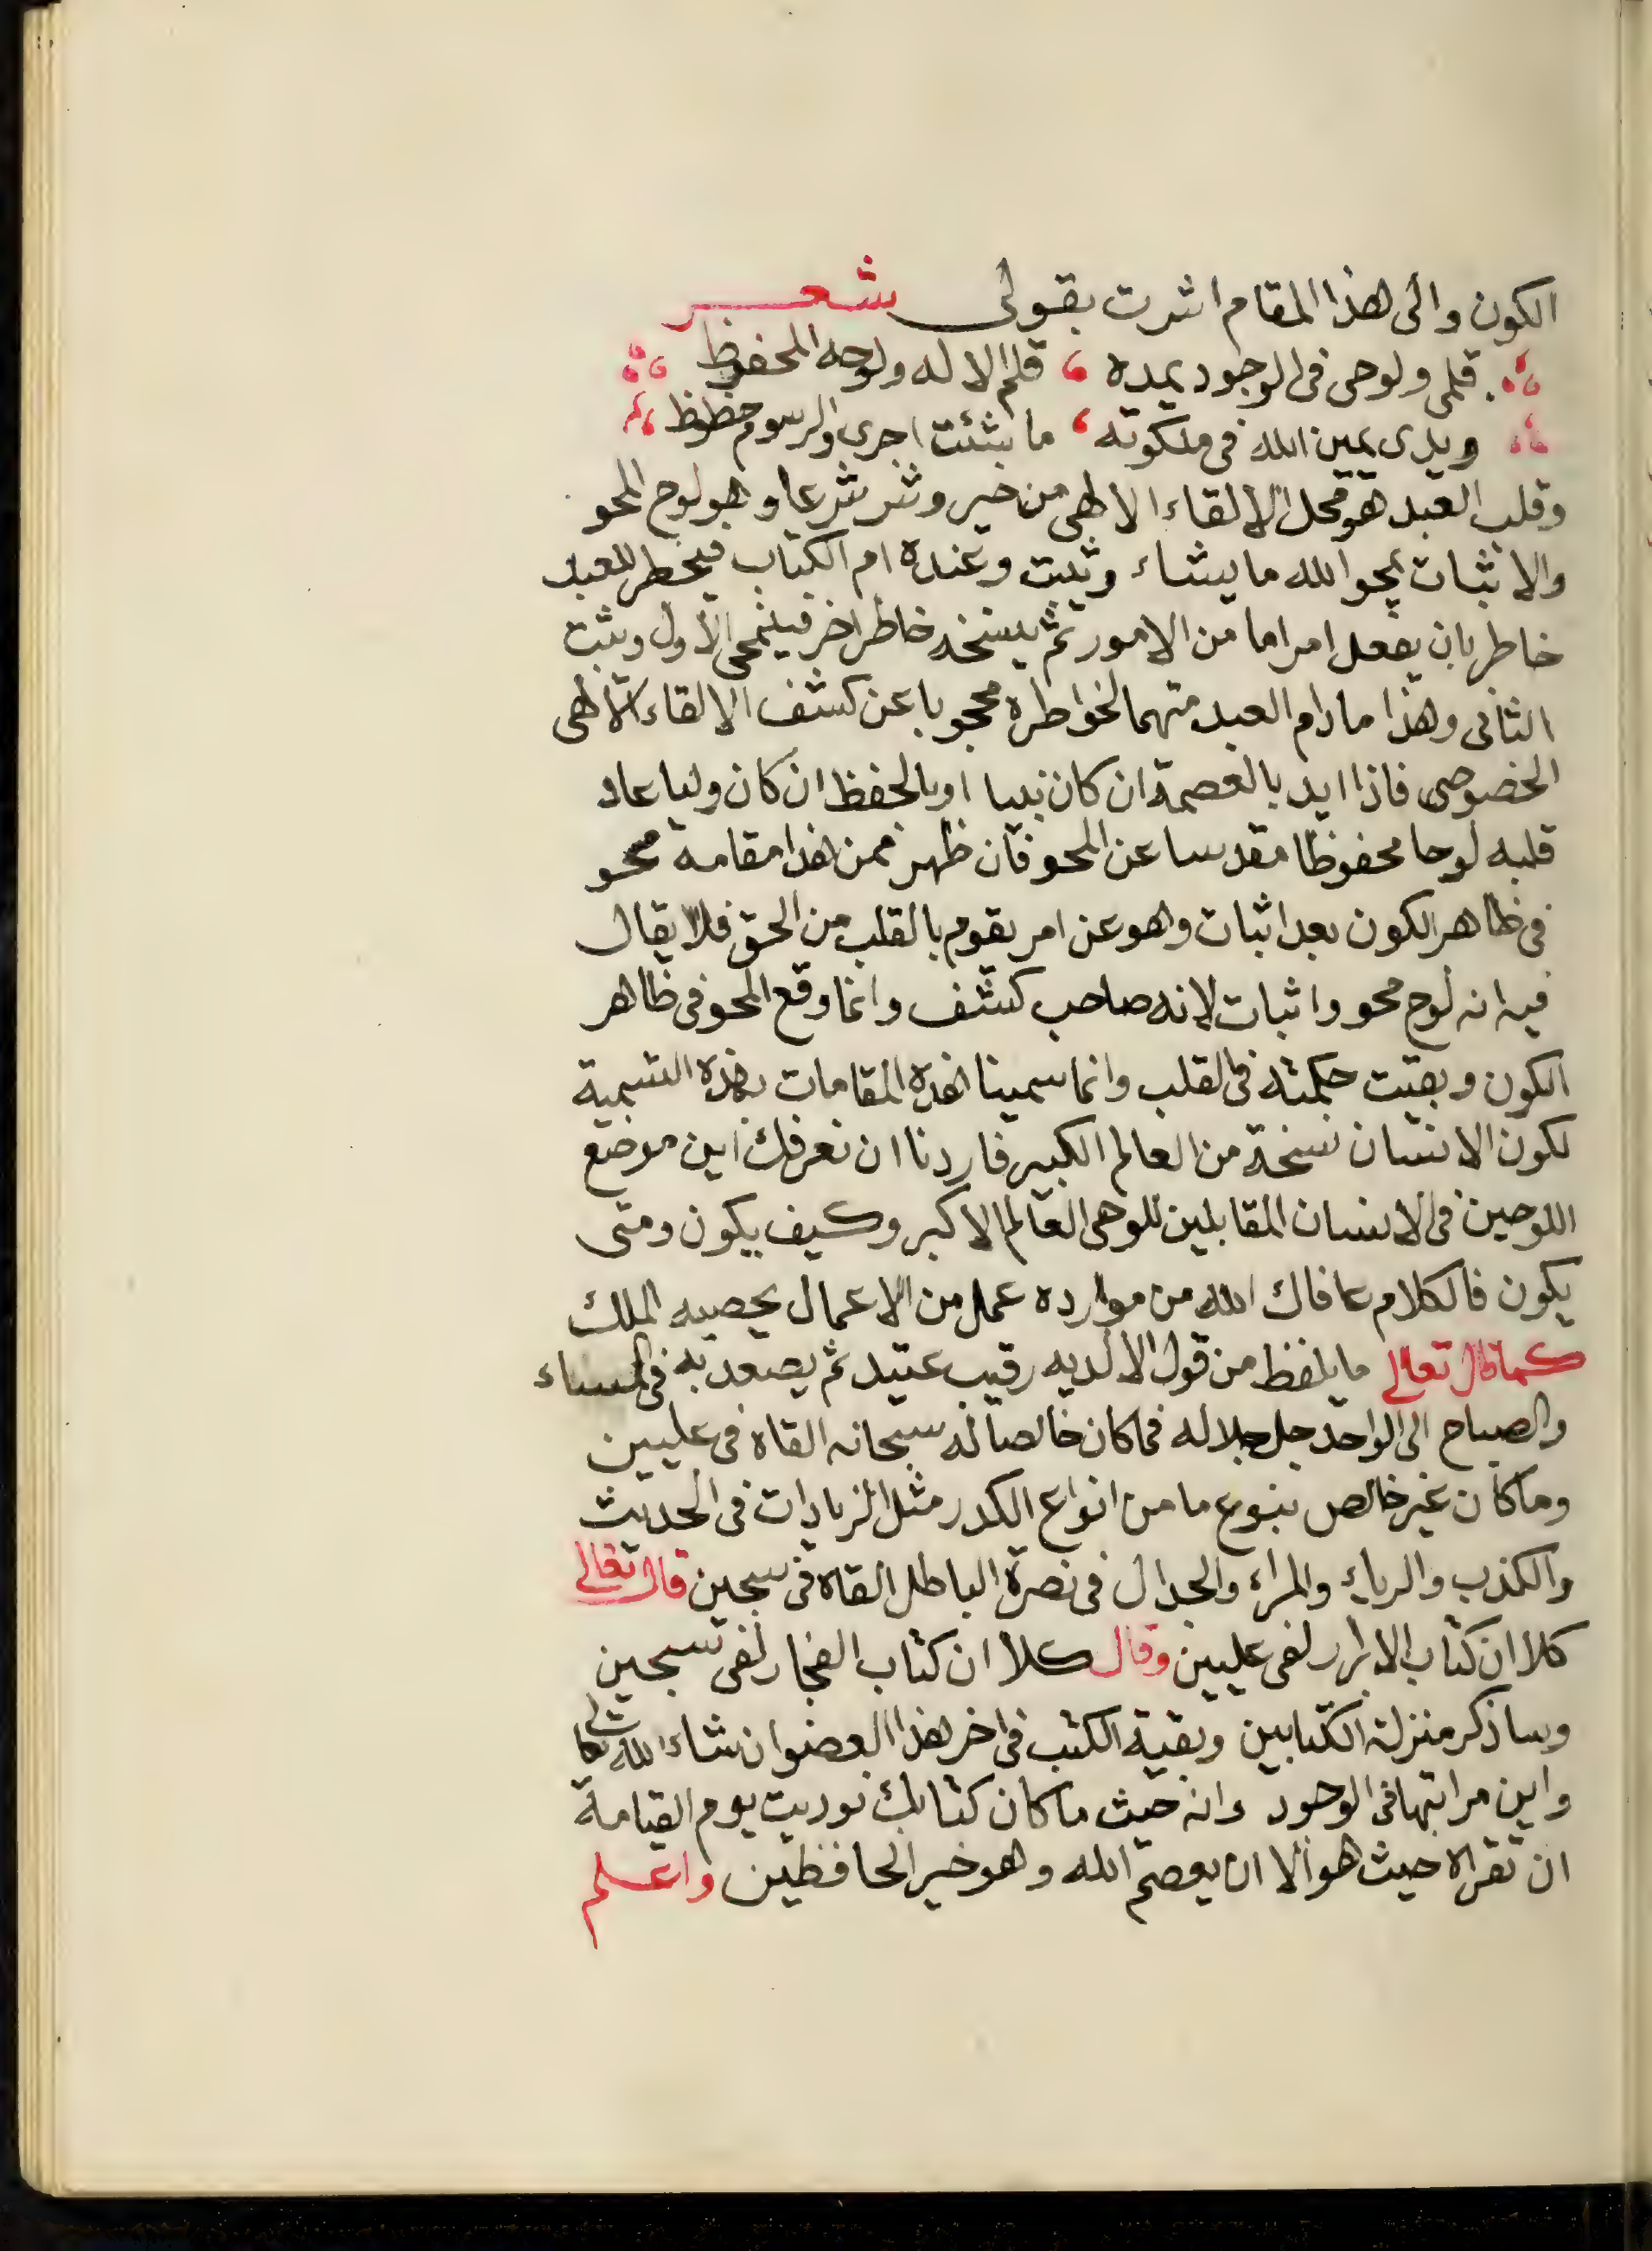 الكون والى هذا المقام اشرت بقولى شعر
قلمى ولوحى فى الوجود يمده قلم الاله ولوحه المحفوظ
ويدى يمين الله فى ملكوته ما شئت اجرى والرسوم حظوظ
وقلب العبد هو محل الالقاء الالهى من خير وشر شرعا وهو لوح المحو
والاثبات يمحو الله ما يشاء ويثبت وعنده ام الكتاب فيخطر للعبد
خاطر بان يفعل امرا ما من الامور ثم ينسخه خاطر اخر فينمحى الاول ويثبت
الثانى وهذا ما دام العبد متهما لخواطره محجوبا عن كشف الالقاء الالهى
الخصوصى فاذا ايد بالعصمة ان كان نبيا او بالحفظ ان كان وليا عاد
قلبه لوحا محفوظا مقدسا عن المحو فان ظهر ممن هذا مقامه محو
فى ظاهر الكون بعد اثبات وهو عن امر يقوم بالقلب من الحق فلا يقال
فيه انه لوح محو واثبات لانه صاحب كشف وانما وقع المحو فى ظاهر
الكون وبقيت حكمته فى القلب وانما سمينا هذه المقامات بهذه التسمية
لكون الانسان نسخة من العالم الكبير فاردنا ان نعرفك اين موضع
اللوحين فى الانسان المقابلين للوحى العالم الاكبر وكيف يكون ومتى
يكون فالكلام عافاك الله من موارده عمل من الاعمال يحصيه الملك
كما قال تعالى ما يلفظ من قول الا لديه رقيب عتيد ثم يصعد به فى المساء
والصباح الى الواحد جل جلاله فما كان خالصا له سبحانه القاه فى عليين
وما كان غير خالص بنوع ما من انواع الكدر مثل الزيادات فى الحديث
والكذب والرياء والمراء والجدال فى نصرة الباطل القاه فى سجين قال تعالى
كلا ان كتاب الابرار لفى عليين وقال كلا ان كتاب الفجار لفى سجين
وساذكر منزلة الكتابين وبقية الكتب فى اخر هذا العضو ان شاء الله تعالى
واين مراتبها فى الوجود وانه حيث ما كان كتابك نوديت يوم القيامة
ان تقراه حيث هو الا ان يعصم الله وهو خير الحافظين واعلم